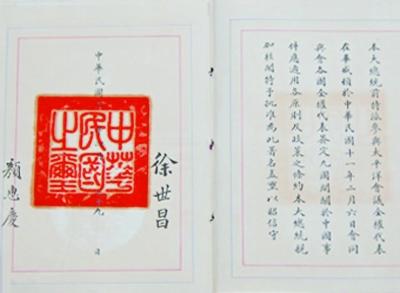 本大總統前特派參與太平洋會議全權代表
在華盛頓於中華民國十一年二月六日會同
與會各國全權代表簽九國間關於中國事
件應適用各原則及政策之條約本大總統親
加核閱特予批准為此署名蓋璽以昭信守
徐世昌
中華民國 九 日
中華民國之璽
顏惠慶